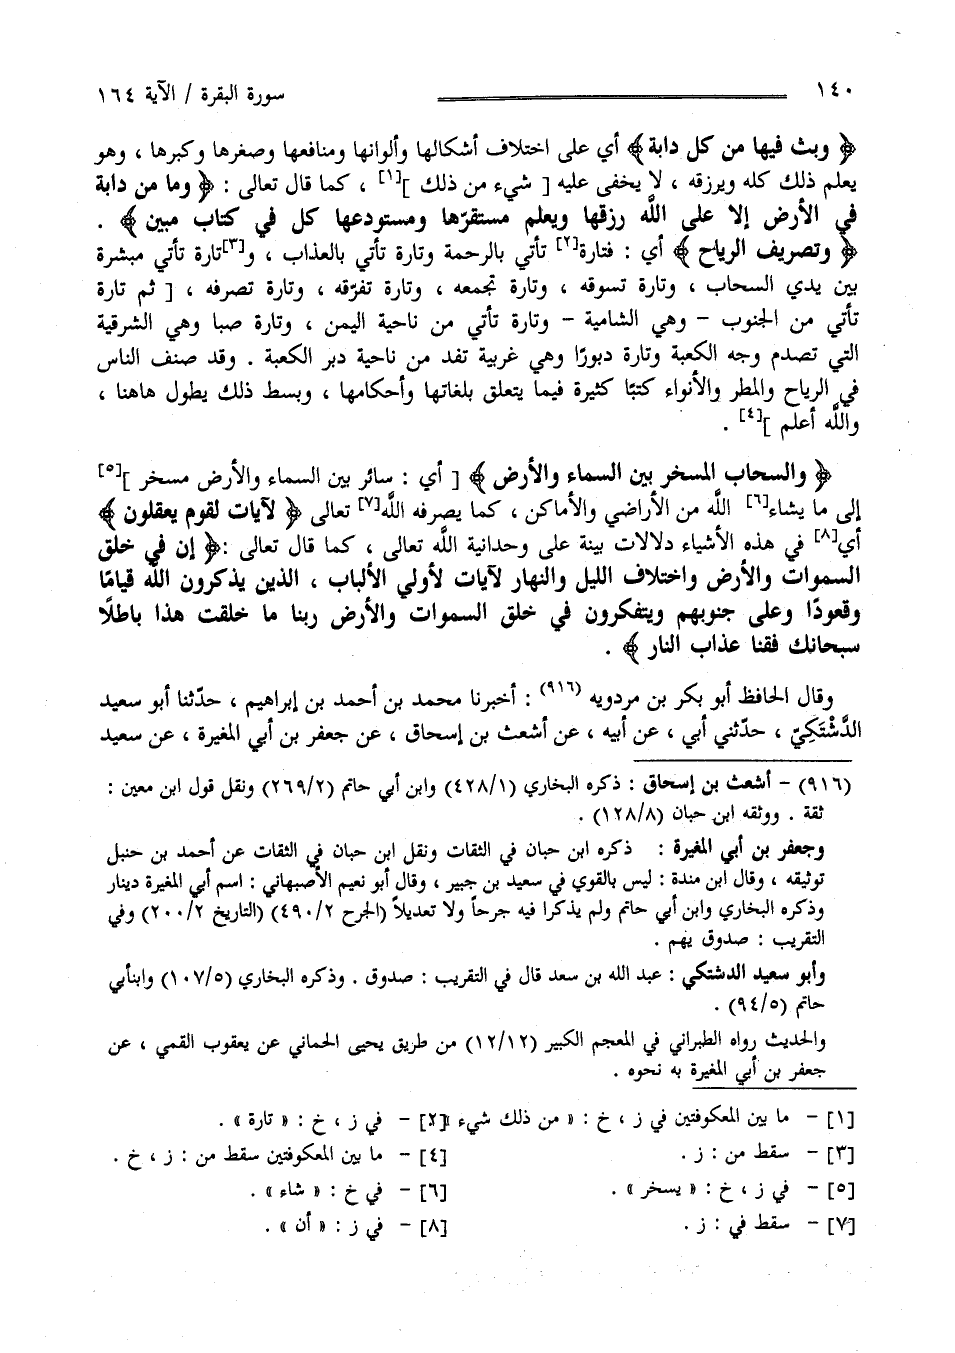 ١٤٠ سورة البقرة / الآية ١٦٤
﴿ وبث فيها من كل دابة ﴾ أي على اختلاف أشكالها وألوانها ومنافعها وصغرها وكبرها ، وهو
يعلم ذلك كله ويرزقه ، لا يخفى عليه [ شيء من ذلك ][١] ، كما قال تعالى : ﴿ وما من دابة
في الأرض إلا على الله رزقها ويعلم مستقرّها ومستودعها كل في كتاب مبين ﴾ .
﴿ وتصريف الرياح ﴾ أي : فتارة[٢] تأتي بالرحمة وتارة تأتي بالعذاب ، و[٣]تارة تأتي مبشرة
بين يدي السحاب ، وتارة تسوقه ، وتارة تجمعه ، وتارة تفرّقه ، وتارة تصرفه ، [ ثم تارة
تأتي من الجنوب - وهي الشامية - وتارة تأتي من ناحية اليمن ، وتارة صبا وهي الشرقية
التي تصدم وجه الكعبة وتارة دبورًا وهي غربية تفد من ناحية دبر الكعبة . وقد صنف الناس
في الرياح والمطر والأنواء كتبًا كثيرة فيما يتعلق بلغاتها وأحكامها ، وبسط ذلك يطول هاهنا ،
والله أعلم ][٤] .
﴿ والسحاب المسخر بين السماء والأرض ﴾ [ أي : سائر بين السماء والأرض مسخر ][٥]
إلى ما يشاء[٦] الله من الأراضي والأماكن ، كما يصرفه الله[٧] تعالى ﴿ لآيات لقوم يعقلون ﴾
أي[٨] في هذه الأشياء دلالات بينة على وحدانية الله تعالى ، كما قال تعالى :﴿ إن في خلق
السموات والأرض واختلاف الليل والنهار لآيات لأولي الألباب ، الذين يذكرون الله قيامًا
وقعودًا وعلى جنوبهم ويتفكرون في خلق السموات والأرض ربنا ما خلقت هذا باطلًا
سبحانك فقنا عذاب النار ﴾ .
وقال الحافظ أبو بكر بن مردويه (٩١٦) : أخبرنا محمد بن أحمد بن إبراهيم ، حدّثنا أبو سعيد
الدَّشْتَكِيّ ، حدّثني أبي ، عن أبيه ، عن أشعث بن إسحاق ، عن جعفر بن أبي المغيرة ، عن سعيد
(٩١٦) - أشعث بن إسحاق : ذكره البخاري (٤٢٨/١) وابن أبي حاتم (٢٦٩/٢) ونقل قول ابن معين :
ثقة . ووثقه ابن حبان (١٢٨/٨) .
وجعفر بن أبي المغيرة : ذكره ابن حبان في الثقات ونقل ابن حبان في الثقات عن أحمد بن حنبل
توثيقه ، وقال ابن مندة : ليس بالقوي في سعيد بن جبير ، وقال أبو نعيم الأصبهاني : اسم أبي المغيرة دينار
وذكره البخاري وابن أبي حاتم ولم يذكرا فيه جرحاً ولا تعديلاً (الجرح ٤٩٠/٢) (التاريخ ٢٠٠/٢) وفي
التقريب : صدوق يهم .
وأبو سعيد الدشتكي : عبد الله بن سعد قال في التقريب : صدوق . وذكره البخاري (١٠٧/٥) وابنأبي
حاتم (٩٤/٥) .
والحديث رواه الطبراني في المعجم الكبير (١٢/١٢) من طريق يحيى الحماني عن يعقوب القمي ، عن
جعفر بن أبي المغيرة به نحوه .
[١] - ما بين المعكوفتين في ز ، خ : « من ذلك شيء » [٢] - في ز ، خ : « تارة » .
[٣] - سقط من : ز . [٤] - ما بين المعكوفتين سقط من : ز ، خ .
[٥] - في ز ، خ : « يسخر » . [٦] - في خ : « شاء » .
[٧] - سقط في : ز . [٨] - في ز : « أن » .